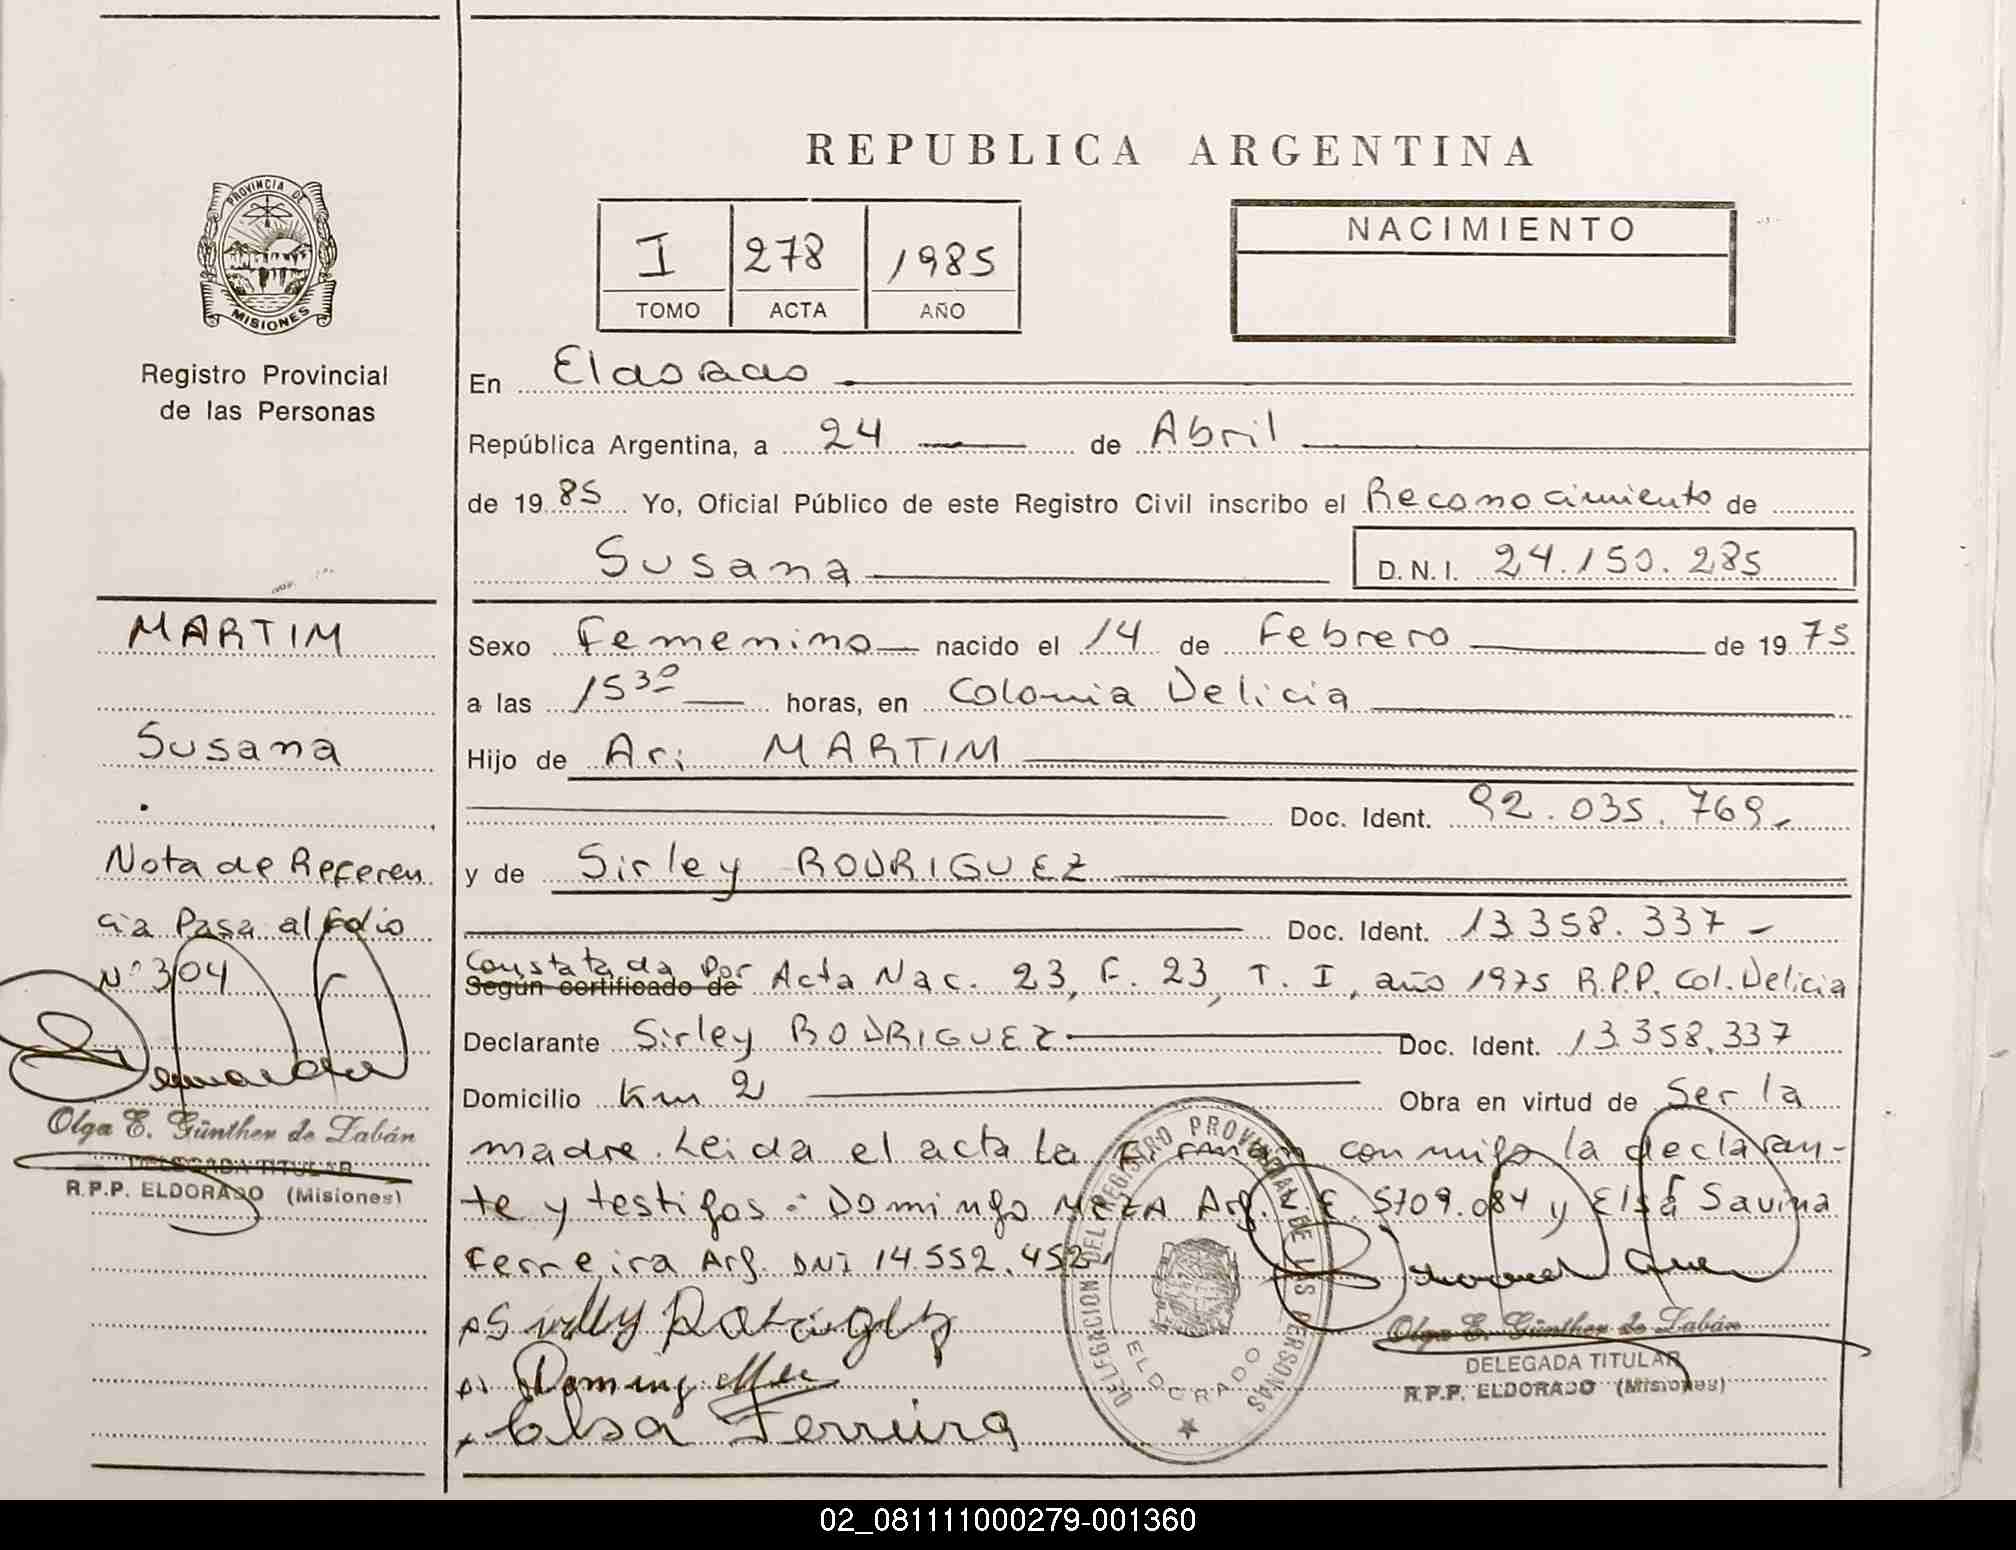 REPUBLICA ARGENTINA
PROVINCIA DE
MISIONES
Registro Provincial
de las Personas
I 278 1985
TOMO ACTA AÑO
NACIMIENTO
En Eldorado
República Argentina, a 24 de Abril
de 19 85 Yo, Oficial Público de este Registro Civil inscribo el Reconocimiento de
Susana D.N.I. 24.150.285
Sexo Femenino nacido el 14 de Febrero de 19 75
a las 15 30 horas, en Colonia Delicia
Hijo de Ari MARTIM
Doc. Ident. 92.035.769
y de Sirley RODRIGUEZ
Doc. Ident. 13.358.337
Constatada por
Según certificado de Acta Nac. 23, F. 23, T. I, año 1975 R.P.P. Col. Delicia
Declarante Sirley RODRIGUEZ Doc. Ident. 13.358.337
Domicilio Km 2 Obra en virtud de Ser la
madre. Leida el acta La Firman conmigo la declaran-
te y testigos: Domingo MEZA Arg. L.E. 5709.084 y Elsa Savina
Ferreira Arg. DNI 14.552.452
Elsa Ferreira
DELEGACION DEL REGISTRO PROVINCIAL DE LAS PERSONAS
ELDORADO
Olga E. Günther de Labán
DELEGADA TITULAR
R.P.P. ELDORADO (Misiones)
MARTIM
Susana
Nota de Referen
cia Pasa al Folio
Nº 304
Olga E. Günther de Labán
DELEGADA TITULAR
R.P.P. ELDORADO (Misiones)
02_081111000279-001360